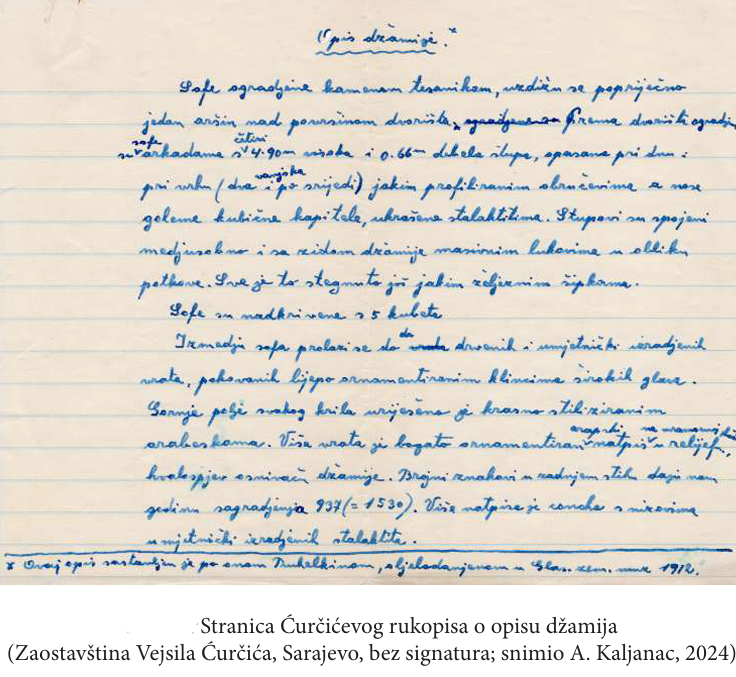 Opis džamije.*
Sofe ogradjene kamenom tesanikom, uzdižu se popriječno
jedan aršin nad površinom dvorišta, Prema dvorištu ogradje
sofe četiri
su arkadama s 4·90m visoka i 0.66m debela stupa, opasana pri dnu i
vanjska
pri vrhu (dva i po srijedi) jakim profiliranim obručevima a nose
goleme kubične kapitele, ukrašene stalaktitima. Stupovi su spojeni
medjusobno i sa zidom džamije masivnim lukovima u obliku
potkove. Sve je to stegnuto još jakim željeznim šipkama.
Sofe su nadkrivene s 5 kubeta
Izmedju sofa prolazi se do drvenih i umjetnički izradjenih
vrata, pokovanih lijepo ornamentiranim klincima širokih glava.
Gornje polje svakog krila uriješeno je krasno stiliziranim
arapski, na
arabeskama. Više vrata je bogato ornamentiran natpis u relijefu,
hvalospjev osnivaču džamije. Brojni znakovi u zadnjem stihu daju nam
godinu sagradjenja 937 (= 1530). Više natpisa je concha s nizovima
umjetnički izradjenih stalaktita.
* Ovaj opis sastavljen je po onom Truhelkinom, objelodanjenom u Glas. zem. muz 1912.
Stranica Ćurčićevog rukopisa o opisu džamija
(Zaostavština Vejsila Ćurčića, Sarajevo, bez signatura; snimio A. Kaljanac, 2024)